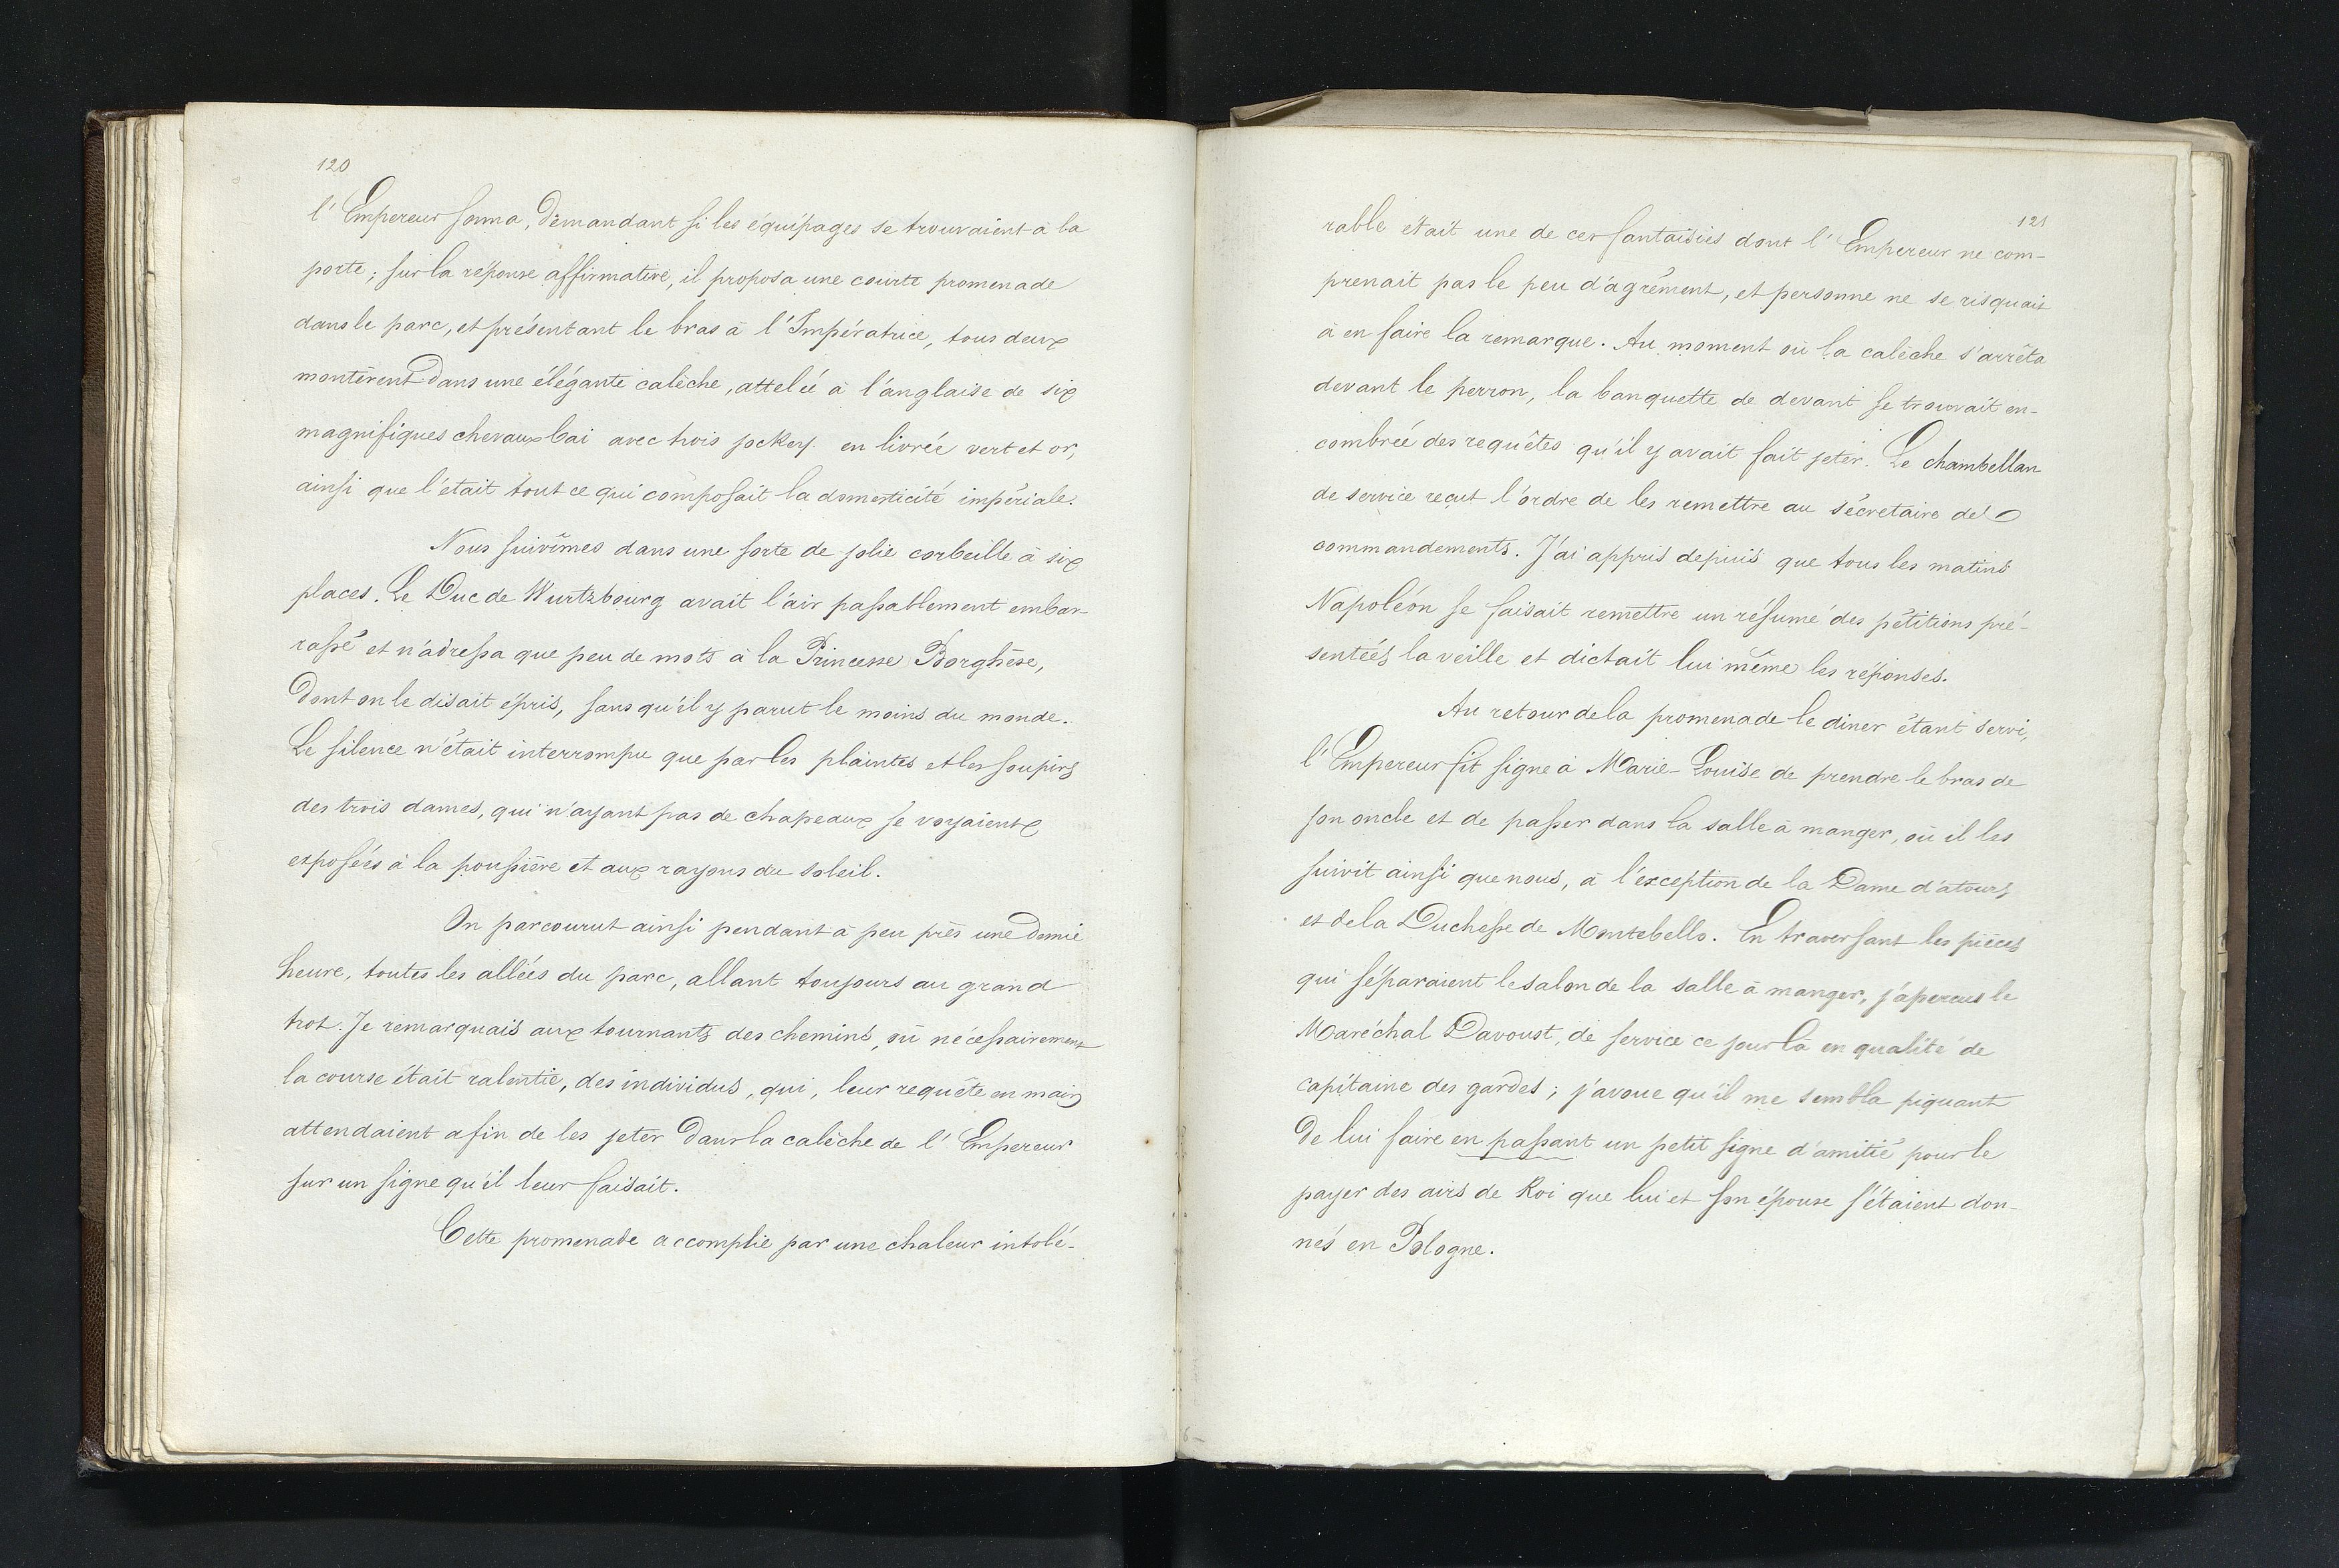 120
l'Empereur sonna, demandant si les équipages se trouvaient à la
porte; sur la réponse affirmative, il proposa une courte promenade
dans le parc, et présentant le bras à l'Impératrice, tous deux
montèrent dans une élégante calèche, attelée à l'anglaise de six
magnifiques chevaux bai avec trois jockey en livrée vert et or,
ainsi que l'était tout ce qui composait la domesticité impériale.
Nous suivîmes dans une sorte de jolie corbeille à six
places. Le Duc de Wurtzbourg avait l'air passablement embar-
rassé et n'adressa que peu de mots à la Princesse Borghèse,
dont on le disait épris, sans qu'il y parut le moins du monde.
Le silence n'était interrompu que par les plaintes et les soupirs
des trois dames, qui n'ayant pas de chapeaux se voyaient
exposées à la poussière et aux rayons du soleil.
On parcourut ainsi pendant à peu près une demie
heure, toutes les allées du parc, allant toujours au grand
trot. Je remarquais aux tournants des chemins, où nécessairement
la course était ralentie, des individus, qui, leur requête en main
attendaient afin de les jeter dans la calèche de l'Empereur
sur un signe qu'il leur faisait.
Cette promenade accomplie par une chaleur intolé-
121
rable était une de ces fantaisies dont l'Empereur ne com-
prenait pas le peu d'agrément, et personne ne se risquait
à en faire la remarque. Au moment où la calèche s'arrêta
devant le perron, la banquette de devant se trouvait en-
combrée des requêtes qu'il y avait fait jeter. Le chambellan
de service reçut l'ordre de les remettre au sécretaire de
commandements. J'ai appris depuis que tous les matins
Napoléon se faisait remettre un résumé des pétitions pré-
sentées la veille et dictait lui même les réponses.
Au retour de la promenade le diner étant servi,
l'Empereur fit signe à Marie-Louise de prendre le bras de
son oncle et de passer dans la salle à manger, où il les
suivit ainsi que nous, à l'exception de la Dame d'atours
et de la Duchesse de Montebello. En traversant les pièces
qui séparaient le salon de la salle à manger, j'aperçus le
Maréchal Davoust, de service ce jour là en qualité de
capitaine des gardes; j'avoue qu'il me sembla piquant
de lui faire en passant un petit signe d'amitié pour le
payer des airs de Roi que lui et son épouse s'étaient don-
nés en Pologne.